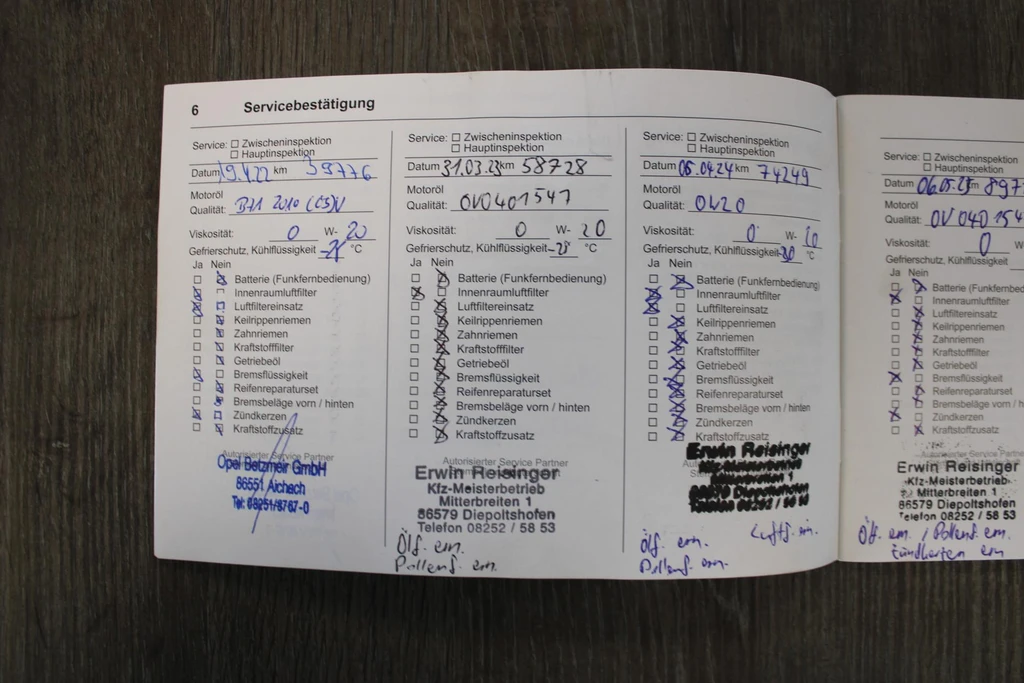 6 Servicebestätigung
Service: Zwischeninspektion
Hauptinspektion
Datum 19.4.22 km 39776
Motoröl
Qualität: B71 2010 (C5)V
Viskosität: 0 W- 20
Gefrierschutz, Kühlflüssigkeit °C
Ja Nein
Batterie (Funkfernbedienung)
Innenraumluftfilter
Luftfiltereinsatz
Keilrippenriemen
Zahnriemen
Kraftstofffilter
Getriebeöl
Bremsflüssigkeit
Reifenreparaturset
Bremsbeläge vorn / hinten
Zündkerzen
Kraftstoffzusatz
Autorisierter Service Partner
Opel Betzmeir GmbH
86551 Aichach
Tel: 08251/8767-0
Service: Zwischeninspektion
Hauptinspektion
Datum 31.03.23 km 58728
Motoröl
Qualität: OV0401547
Viskosität: 0 W- 20
Gefrierschutz, Kühlflüssigkeit -28 °C
Ja Nein
Batterie (Funkfernbedienung)
Innenraumluftfilter
Luftfiltereinsatz
Keilrippenriemen
Zahnriemen
Kraftstofffilter
Getriebeöl
Bremsflüssigkeit
Reifenreparaturset
Bremsbeläge vorn / hinten
Zündkerzen
Kraftstoffzusatz
Autorisierter Service Partner
Erwin Reisinger
Kfz-Meisterbetrieb
Mitterbreiten 1
86579 Diepoltshofen
Telefon 08252 / 58 53
Ölf. ern.
Pollenf. ern.
Service: Zwischeninspektion
Hauptinspektion
Datum 05.04.24 km 74249
Motoröl
Qualität: 0W20
Viskosität: 0 W- 20
Gefrierschutz, Kühlflüssigkeit -30 °C
Ja Nein
Batterie (Funkfernbedienung)
Innenraumluftfilter
Luftfiltereinsatz
Keilrippenriemen
Zahnriemen
Kraftstofffilter
Getriebeöl
Bremsflüssigkeit
Reifenreparaturset
Bremsbeläge vorn / hinten
Zündkerzen
Kraftstoffzusatz
Autorisierter Service Partner
Erwin Reisinger
Diepoltshofen
Ölf. ern. Luftf. ern.
Pollenf. ern.
Service: Zwischeninspektion
Hauptinspektion
Datum 06.05.25 km 897
Motoröl
Qualität: OV040154
Viskosität: 0 W
Gefrierschutz, Kühlflüssigkeit
Ja Nein
Batterie (Funkfernbed
Innenraumluftfilter
Luftfiltereinsatz
Keilrippenriemen
Zahnriemen
Kraftstofffilter
Getriebeöl
Bremsflüssigkeit
Reifenreparaturset
Bremsbeläge vorn / hinten
Zündkerzen
Kraftstoffzusatz
Autorisierter Service Partner
Erwin Reisinger
Kfz-Meisterbetrieb
Mitterbreiten 1
86579 Diepoltshofen
Telefon 08252 / 58 53
Ölf. ern. / Pollenf. ern.
Zündkerzen ern